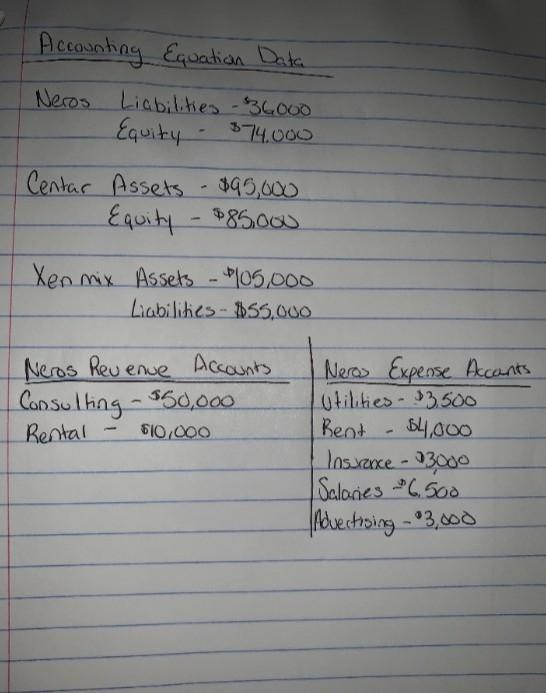 Accounting Equation Data
Neros Liabilities - $36000
Equity - $74,000
Centar Assets - $95,000
Equity - $85,000
Xenmix Assets - $105,000
Liabilities - $55,000
Neros Revenue Accounts
Consulting - $50,000
Rental - $10,000
Neros Expense Accants
Utilities - $3,500
Rent - $4,000
Insurance - $3000
Salaries - $6,500
Advertising - $3,000